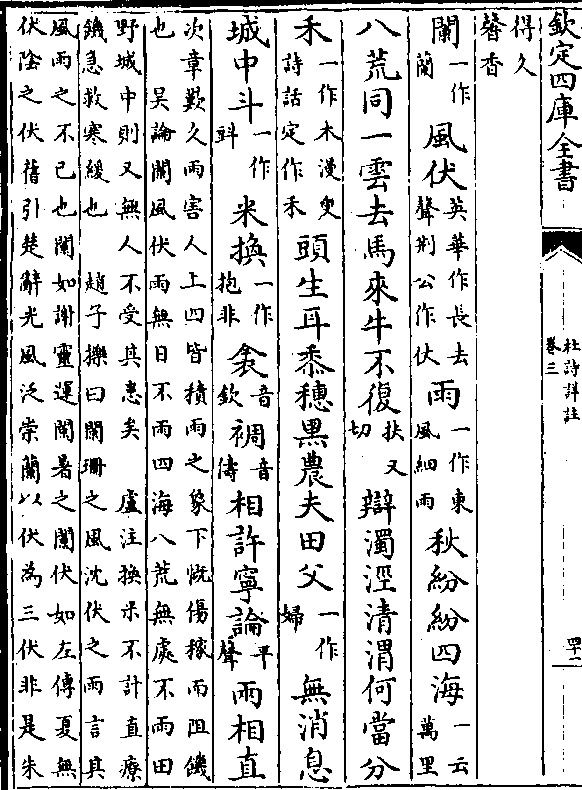 欽定四庫全書
杜詩詳註
卷三
得久
馨香
闌一作蘭風伏英華作長去聲荆公作伏雨一作東風細雨秋紛紛四海一云萬里
八荒同一雲去馬來牛不復扶又切辯濁涇清渭何當分
禾一作木漫叟詩話定作禾頭生耳黍穗黑農夫田父一作婦無消息
城中斗一作㪷米換一作抱非衾音欽裯音儔相許寧論平聲兩相直
次章歎久雨害人上四皆積雨之象下慨傷稼而阻饑
也 吴論闌風伏雨無日不雨四海八荒無處不雨田
野城中則又無人不受其患矣 盧注換米不計直療
饑急救寒緩也 趙子櫟曰闌珊之風沈伏之雨言其
風雨之不已也闌如謝靈運闌暑之闌伏如左傳夏無
伏陰之伏舊引楚辭光風泛崇蘭以伏為三伏非是朱